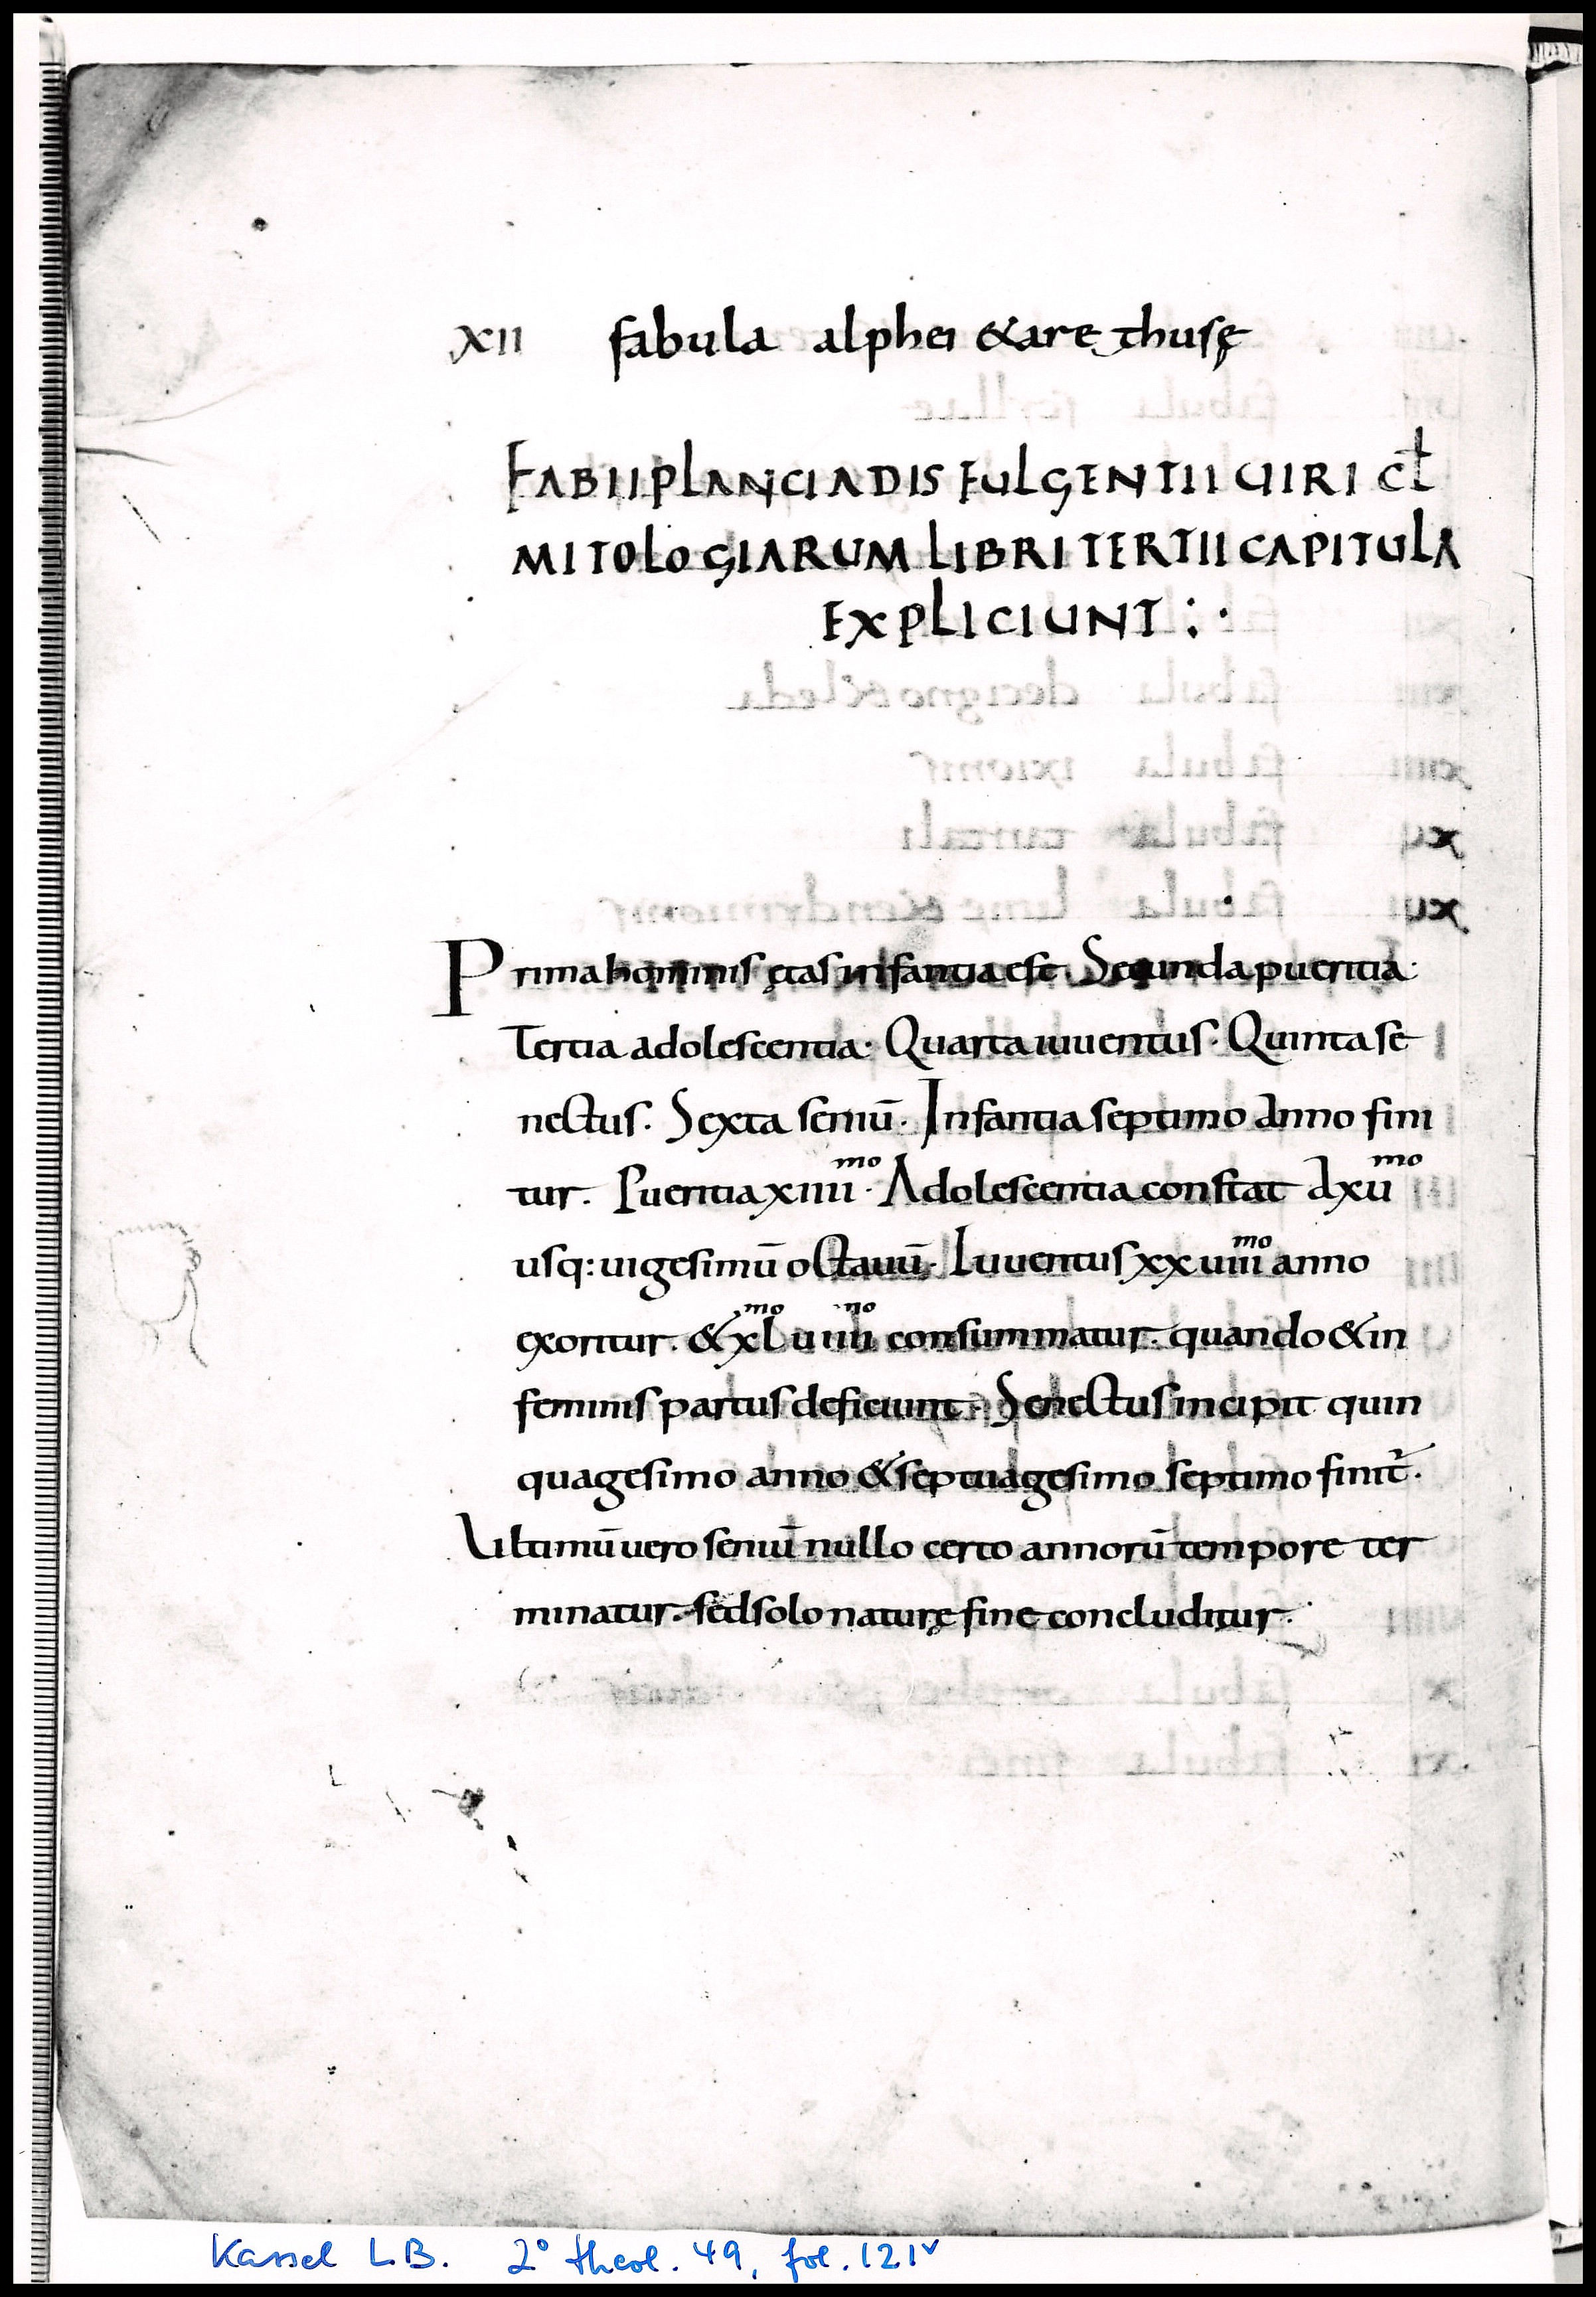 XII fabula alphei &are thusę
FABII PLANCIADIS FULGENTII UIRI CŁ
MITOLOGIARUM LIBRI TERTII CAPITULA
EXPLICIUNT :·
Prima hominis ętas infantia est Secunda pueritia·
Tertia adolescentia· Quarta iuuentus· Quinta se
nectus. Sexta seniū· Infantia septimo anno fini
tur. Pueritia xiiii mo· Adolescentia constat a xu mo
usq: uigesimū octauū· Iuuentus xxuiiii mo anno
exoritur. & xl mo uiiii no consummatur. quando & in
feminis partus deficiunt· Senectus incipit quin
quagesimo anno & septuagesimo septimo finit̄.
Ultimū uero seniū nullo certo annorū tempore ter
minatur. sed solo naturę fine concluditur.
Kassel L.B. 2° theol. 49, fol. 121v